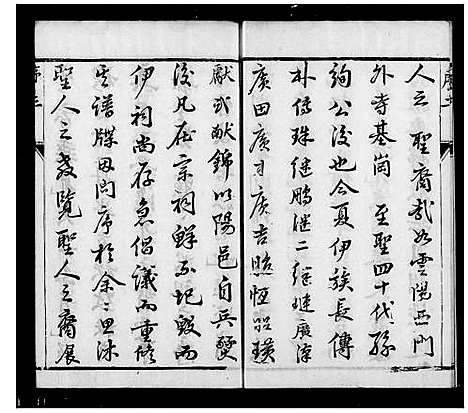 人之 聖裔哉如雲陽西門
外寺基崗 至聖四十代孫
詢公後也今夏伊族長傳
朴傳珠继鵬继二继继廣淳
廣田廣才廣吉照恆昭璜
獻武献錦以陽邑自兵燹
後凡在宗祠鮮不圮毀而
伊祠尚存急倡議而重修
其譜牒因問序於余余思沐
聖人之教覽聖人之裔展